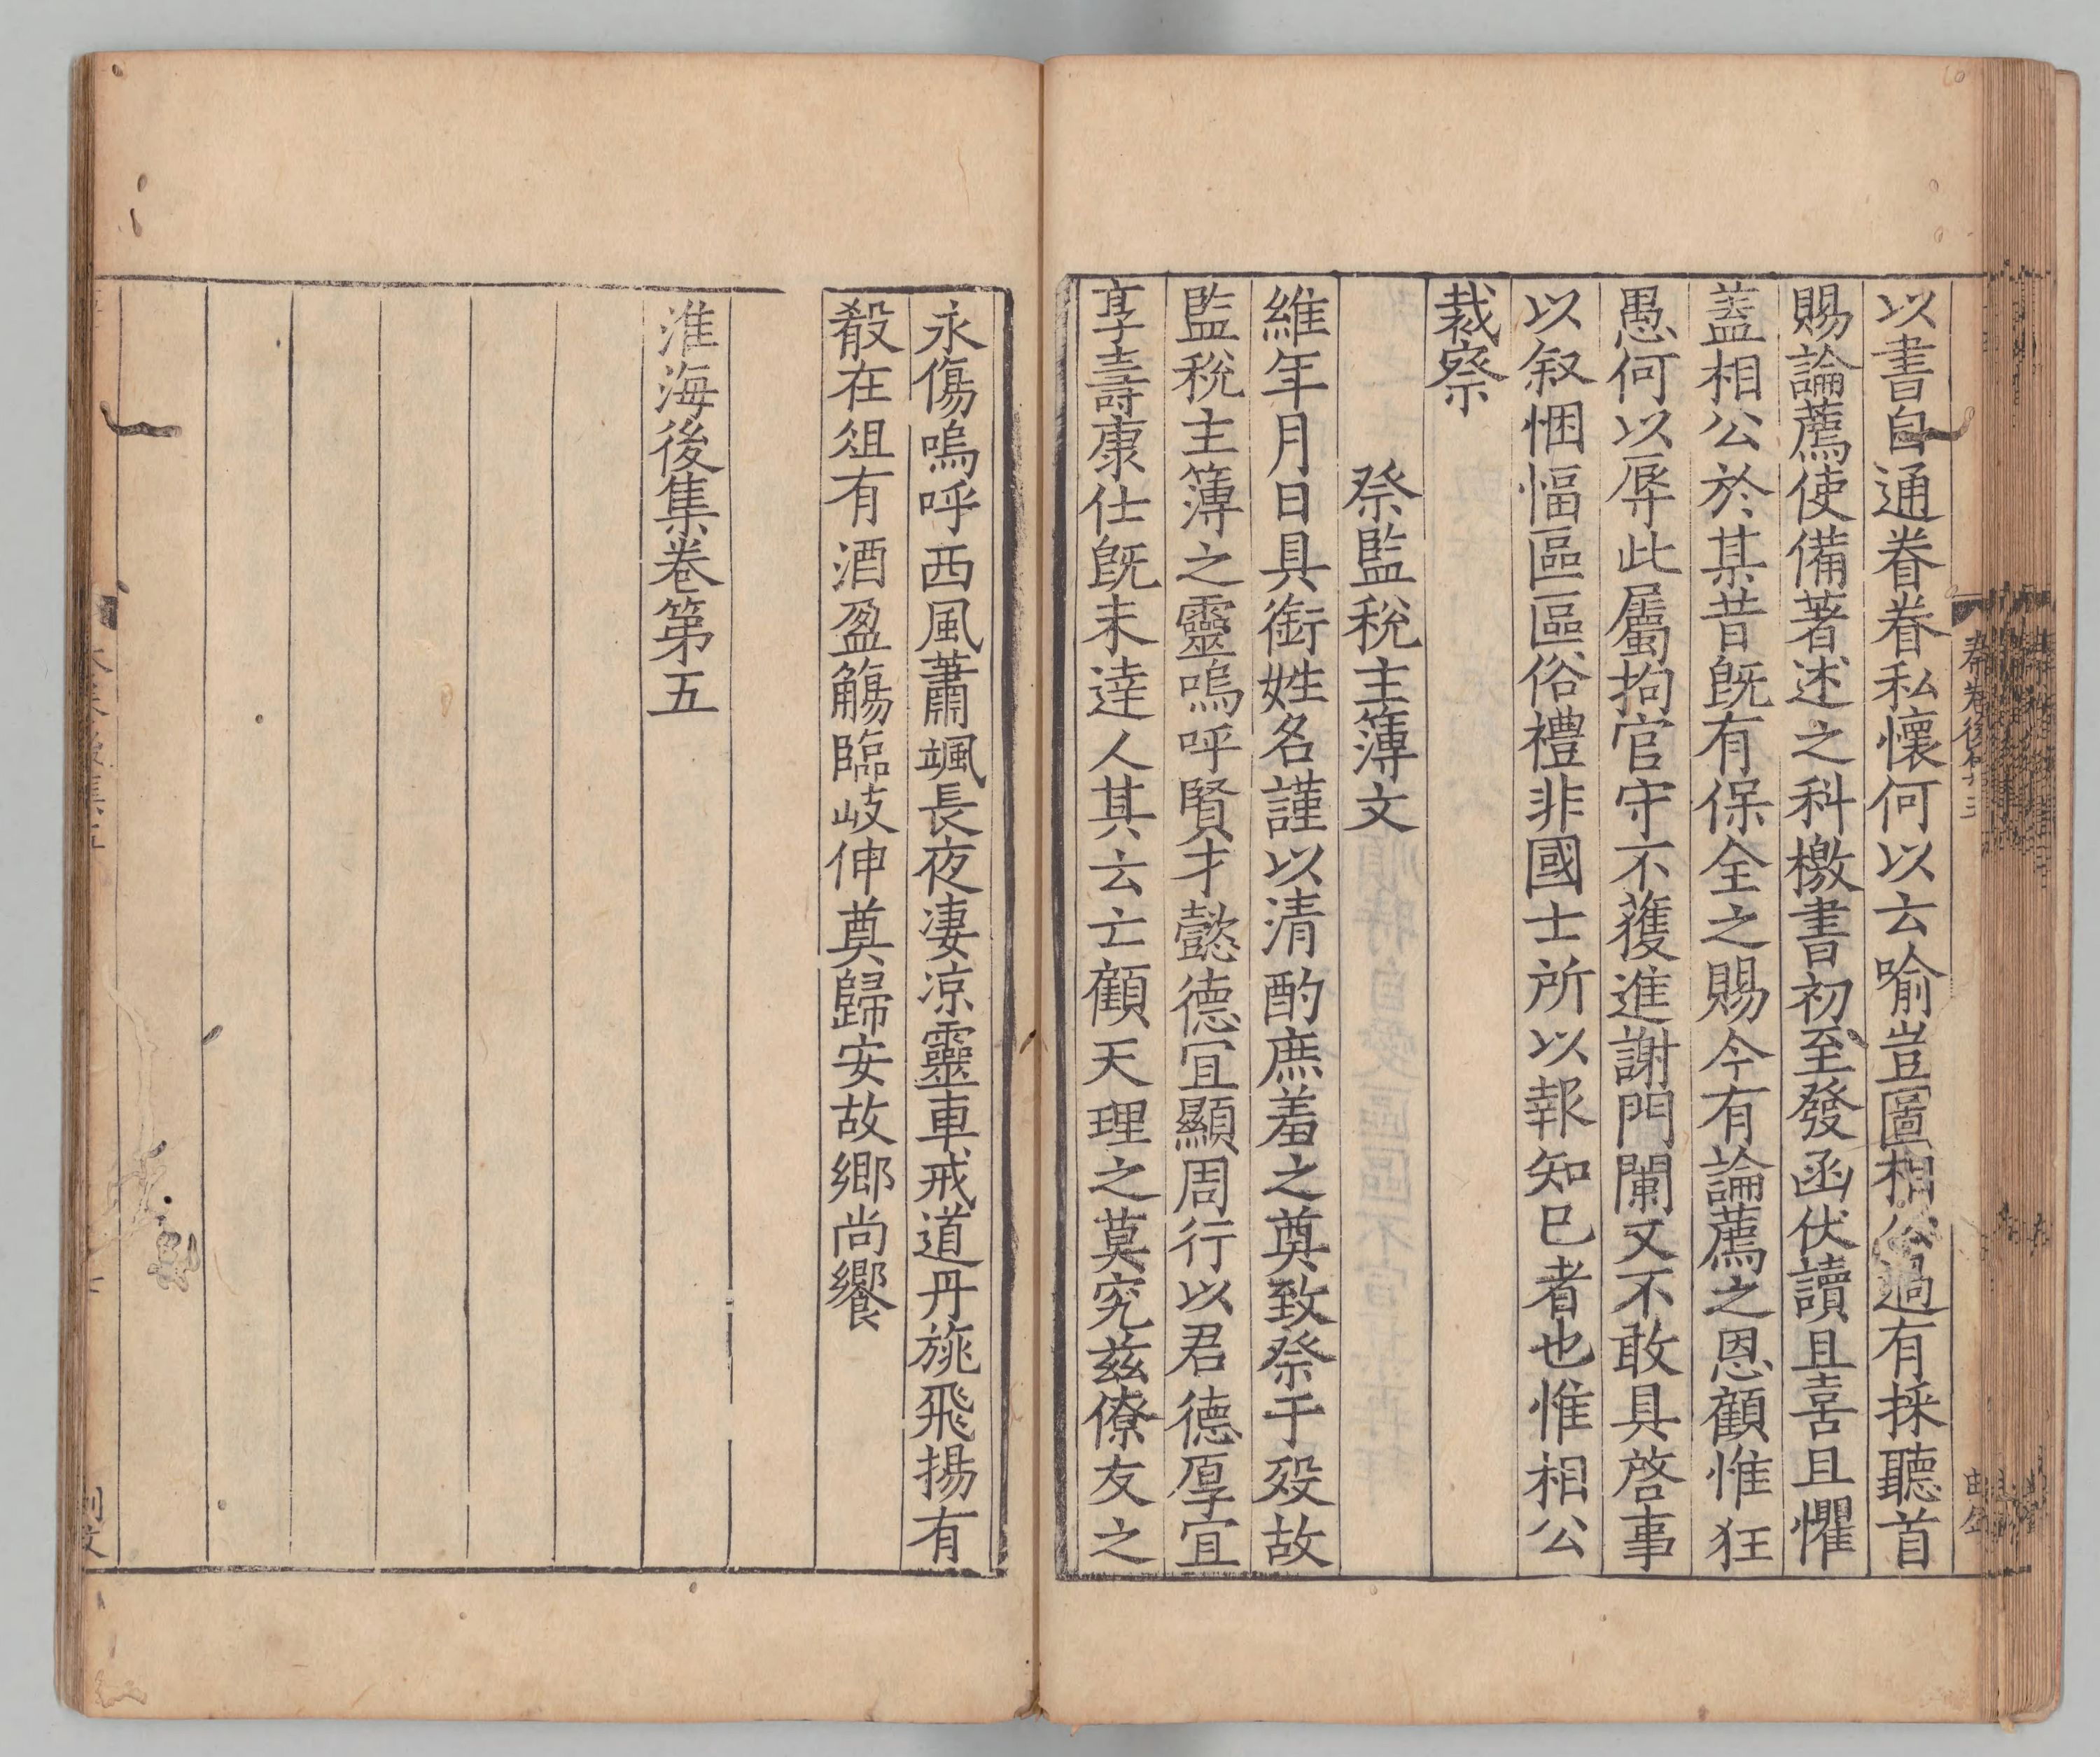 以書自通眷眷私懷何以云喻豈圖相公過有採聽首
賜論薦使備著述之科檄書初至發函伏讀且喜且懼
蓋相公於某昔既有保全之賜今有論薦之恩顧惟狂
愚何以辱此屬拘官守不獲進謝門闌又不敢具啓事
以叙悃愊區區俗禮非國士所以報知已者也惟相公
裁察
祭監稅主簿文
維年月日具銜姓名謹以清酌庶羞之奠致祭于歿故
監稅主簿之靈嗚呼賢才懿德宜顯周行以君德厚宜
享壽康仕既未達人其云亡顧天理之莫究兹僚友之
永傷嗚呼西風蕭颯長夜淒凉靈車戒道丹旐飛揚有
殽在俎有酒盈觴臨岐伸奠歸安故鄉尚饗
淮海後集卷第五